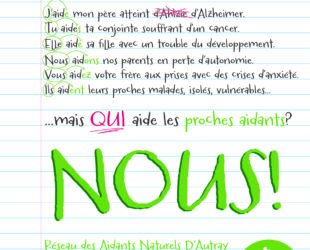 J'aide mon père atteint d'Alzheimer.
Tu aides ta conjointe souffrant d'un cancer.
Elle aide sa fille avec un trouble du développement.
Nous aidons nos parents en perte d'autonomie.
Vous aidez votre frère aux prises avec des crises d'anxiété.
Ils aident leurs proches malades, isolés, vulnérables...
...mais QUI aide les proches aidants?
NOUS!
Réseau des Aidants Naturels D'Autray